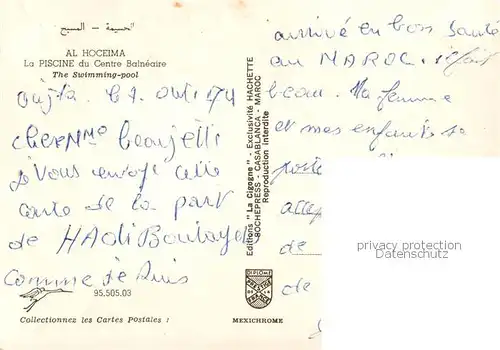 الحسيمة - المسبح
AL HOCEIMA
La PISCINE du Centre Balnéaire
The Swimming-pool
oujta. le 7. out 74
cher Mme Beaujelli
je vous envoye cette
carte de la part
de HAdi Boutaye
comme je suis
95.505.03
Collectionnez les Cartes Postales !
Editions "La Cigogne" - Exclusivité HACHETTE
SOCHEPRESS - CASABLANCA - MAROC
Reproduction interdite
DIPLOME
PRESTIGE
MEXICHROME
arrivé en bon santé
au MAROC. il fait
beau. Ma femme
et mes enfants se
porte
de
de
privacy protection
Datenschutz